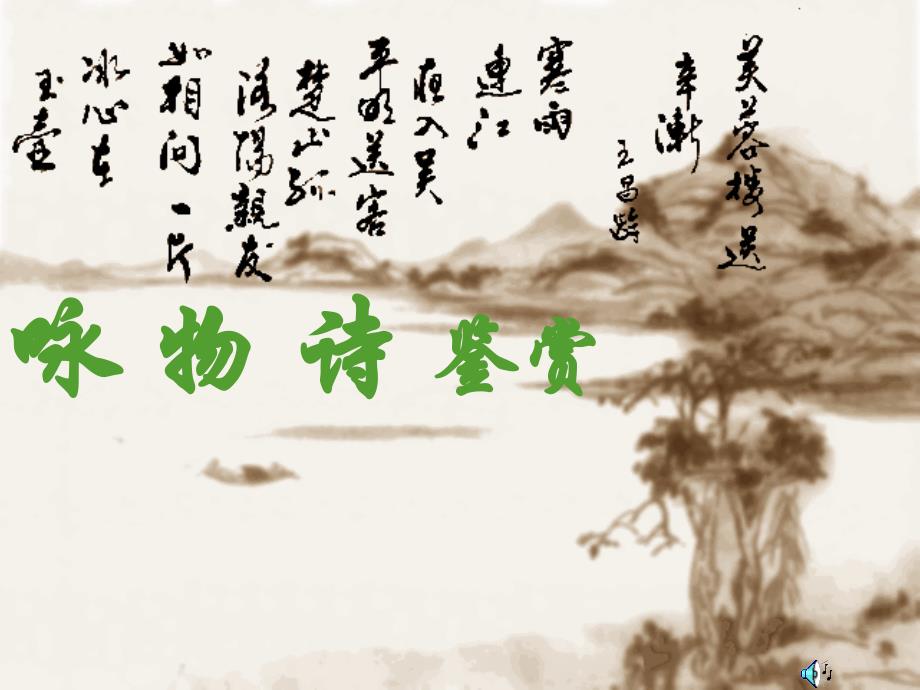 芙蓉楼送
辛漸
王昌龄
寒雨
連江
夜入吴
平明送客
楚山孤
洛陽親友
如相问一片
冰心在
玉壶
咏物诗鉴赏